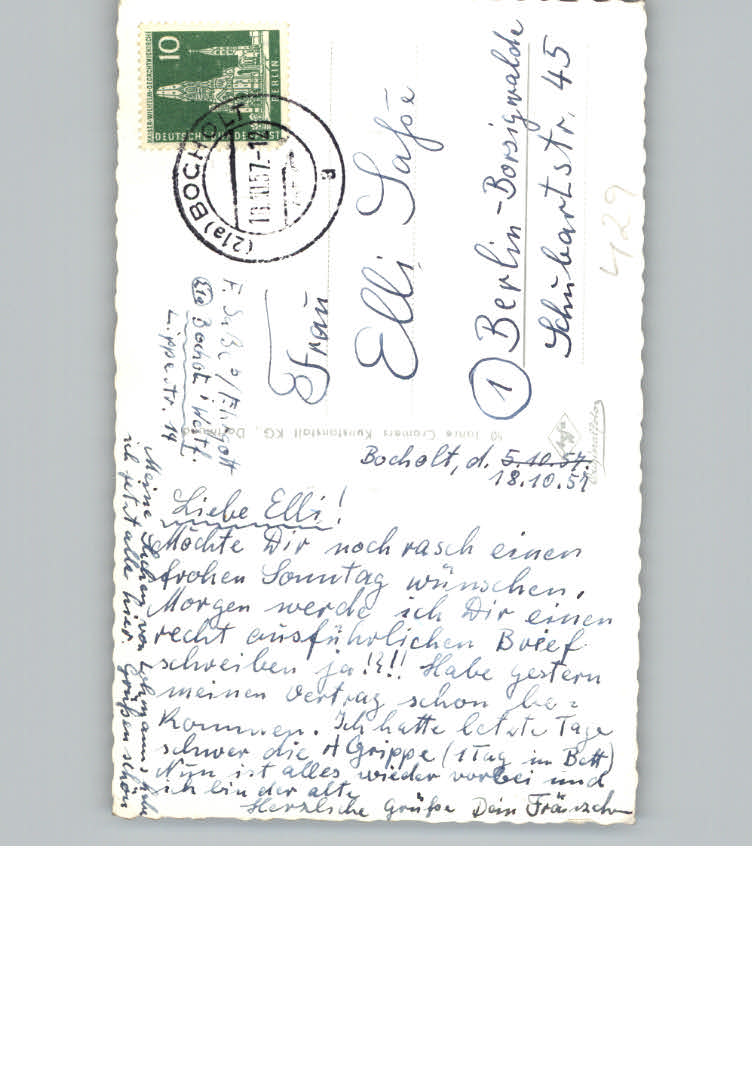 10
KAISER-WILHELM-GEDÄCHTNISKIRCHE
BERLIN
DEUTSCHE BUNDESPOST
(21a) BOCHOLT
18.10.57.-1
a
F. Saße b/Ehrgott
21a Bocholt i. Westf.
Lippestr. 14
Frau
Elli Saße
1 Berlin-Borsigwalde
Schubartstr. 45
429
50 Jahre Cramers Kunstanstalt KG., Dortmund
Agfa
Originalfoto
Bocholt, d. 5.10.57.
18.10.57
Liebe Elli!
Möchte Dir noch rasch einen
frohen Sonntag wünschen.
Morgen werde ich Dir einen
recht ausführlichen Brief
schreiben ja!?!! Habe gestern
meinen Vertrag schon be=
kommen. Ich hatte letzte Tage
schwer die A Grippe (1 Tag im Bett)
Nun ist alles wieder vorbei und
ich bin der alte
Herzliche Grüße Dein Fränzchen
Meine Sachen von Lohmanns habe
ich jetzt alle hier. Grüßen schön